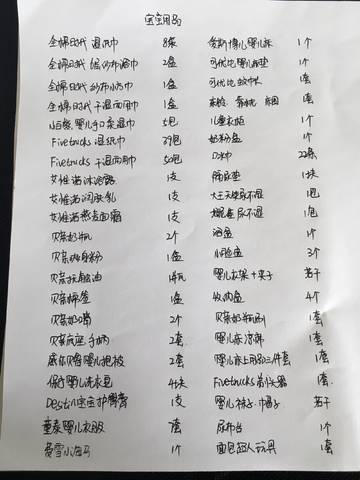 宝宝用品
全棉时代 湿巾 8袋
全棉时代 纱布浴巾 2盒
全棉时代 纱布小方巾 1盒
全棉时代 干湿两用巾 1盒
婴儿手口柔湿巾 5包
Fivetrucks 湿纸巾 39包
Fivetrucks 干湿两用巾 50包
艾惟诺沐浴露 1支
艾惟诺润肤乳 1支
艾惟诺燕麦面霜 1支
贝亲奶瓶 2个
贝亲爽身粉 1盒
贝亲抚触油 1瓶
贝亲棉签 1盒
贝亲奶嘴 2个
贝亲底座 手柄 2套
婴儿抱被 2套
保宁婴儿洗衣皂 4块
Desitin宝宝护臀膏 1支
童泰婴儿衣服 7套
费雪小海马 1个
婴儿床 1个
可优比婴儿床垫 1个
可优比蚊帐 1套
床围 1套
儿童衣架 1个
奶粉盒 1个
口水巾 22条
隔尿垫 1块
大王天使尿不湿 1包
尿不湿 1包
浴盆 1个
小脸盆 3个
婴儿衣架+夹子 若干
收纳盒 4个
贝亲奶瓶刷 1套
婴儿床凉席 1套
婴儿床上用品三件套 1套
Fivetrucks 1套
婴儿袜子、帽子 若干
尿布台 1个
面包超人玩具 1套